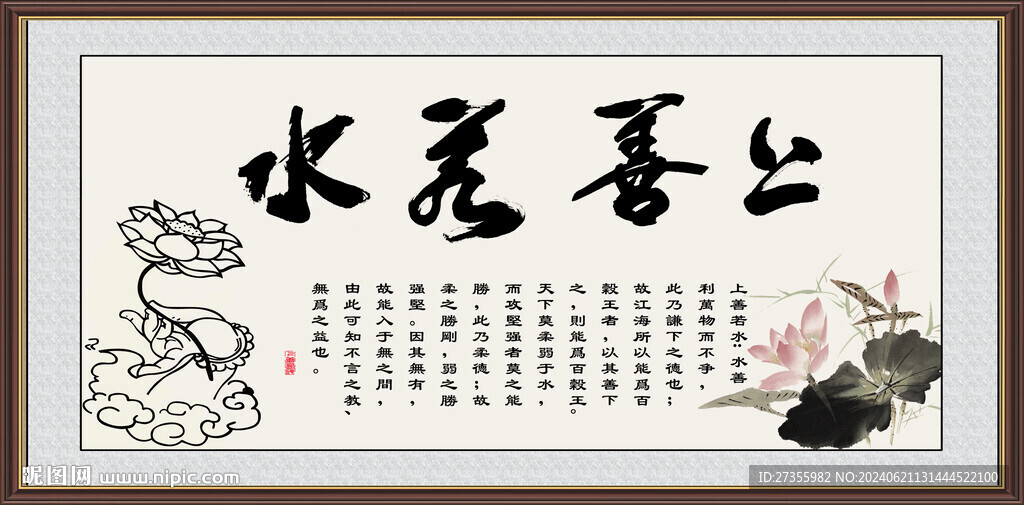 上善若水
上善若水：水善
利萬物而不爭，
此乃謙下之德也；
故江海所以能爲百
穀王者，以其善下
之，則能爲百穀王。
天下莫柔弱于水，
而攻堅强者莫之能
勝，此乃柔德；故
柔之勝剛，弱之勝
强堅。因其無有，
故能入于無之間，
由此可知不言之教、
無爲之益也。
昵图网 www.nipic.com
ID:27355982 NO:20240621131444522100